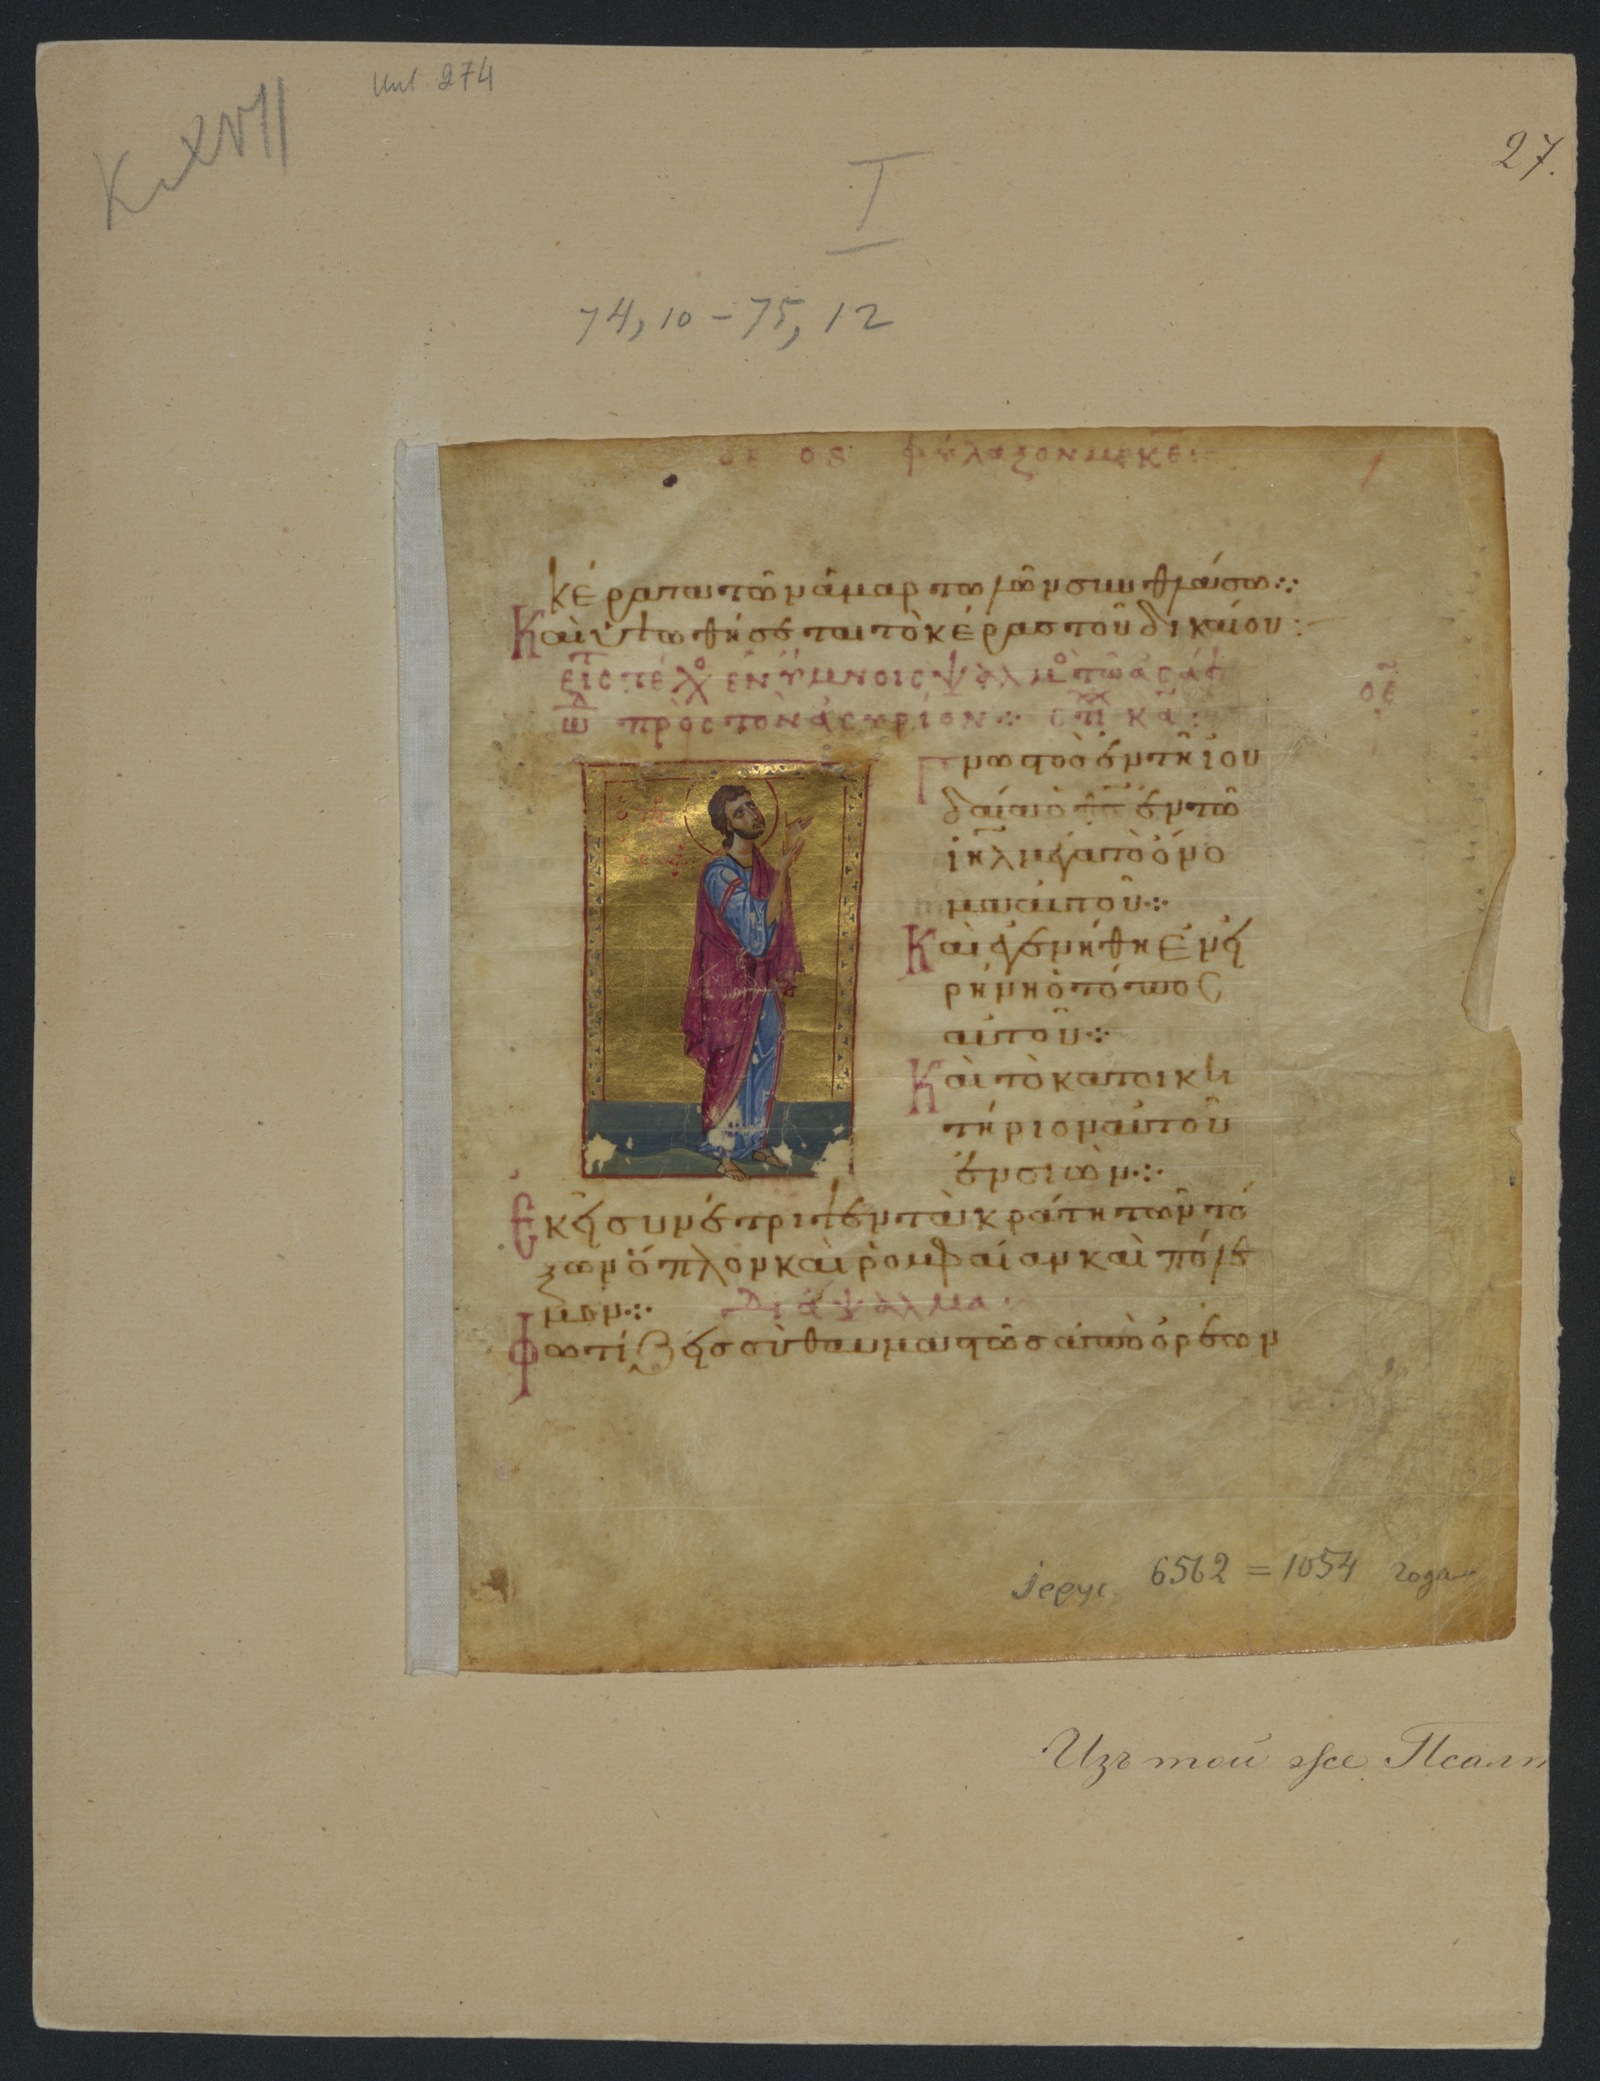 274
27.
I
74, 10 - 75, 12
φύλαξόν με κε:
κέρατα τῶν ἁμαρτωλῶν συνθλάσω ⁘
Καὶ ὑψωθήσεται τὸ κέρας τοῦ δικαίου :
εἰς τὸ τέλος ἐν ὕμνοις ψαλμὸς τῶ ἀσάφ
πρὸς τὸν ἀσύριον ⁘
οε
Γνωστὸς ἐν τῆ ἰου
δαία ὁ θς ἐν τῶ
ιηλ μέγα τὸ ὄνο
μα αὐτοῦ ⁘
Καὶ ἐγενήθη ἐν εἰ
ρήνη ὁ τόπος
αὐτοῦ ⁘
Καὶ τὸ κατοικη
τήριον αὐτοῦ
ἐν σιών ⁘
Ἐκεῖ συνέτριψεν τὰ κράτη τῶν τό
ξων ὅπλον καὶ ρομφαίαν καὶ πόλε
μον ⁘ Διάψαλμα ·
Φωτίζεις σὺ θαυμαστῶς ἀπὸ ὀρέων
іерус. 6562 = 1054 года
Изъ той же Псалт